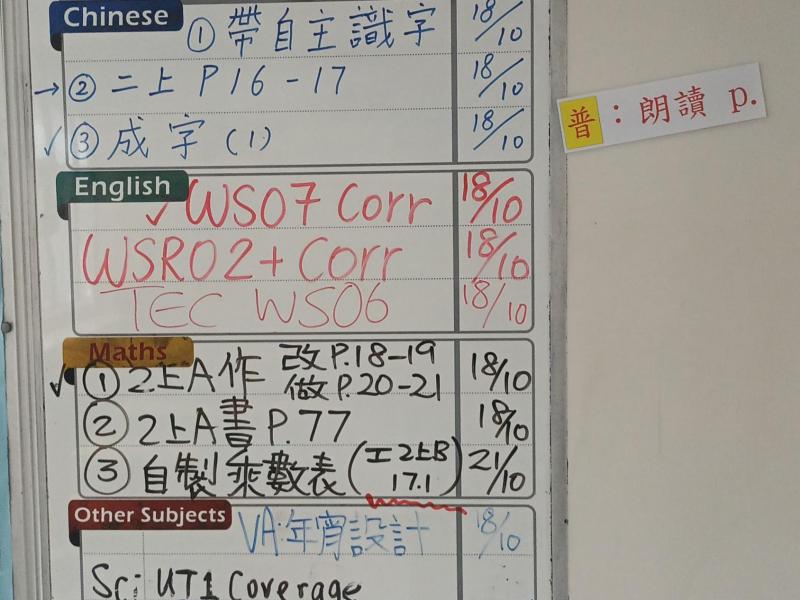 Chinese
① 帶自主識字 18/10
→ ② 二上 P16-17 18/10
✓ ③ 成字(1) 18/10
普：朗讀 p.
English
✓ WS07 Corr 18/10
WSR02 + Corr 18/10
TEC WS06 18/10
Maths
✓ ① 2上A作 改 P.18-19 18/10
做 P.20-21
② 2上A書 P.77 18/10
③ 自製乘數表 (工2上B 21/10
17.1)
Other Subjects
VA:年宵設計 18/10
Sc: UT1 Coverage